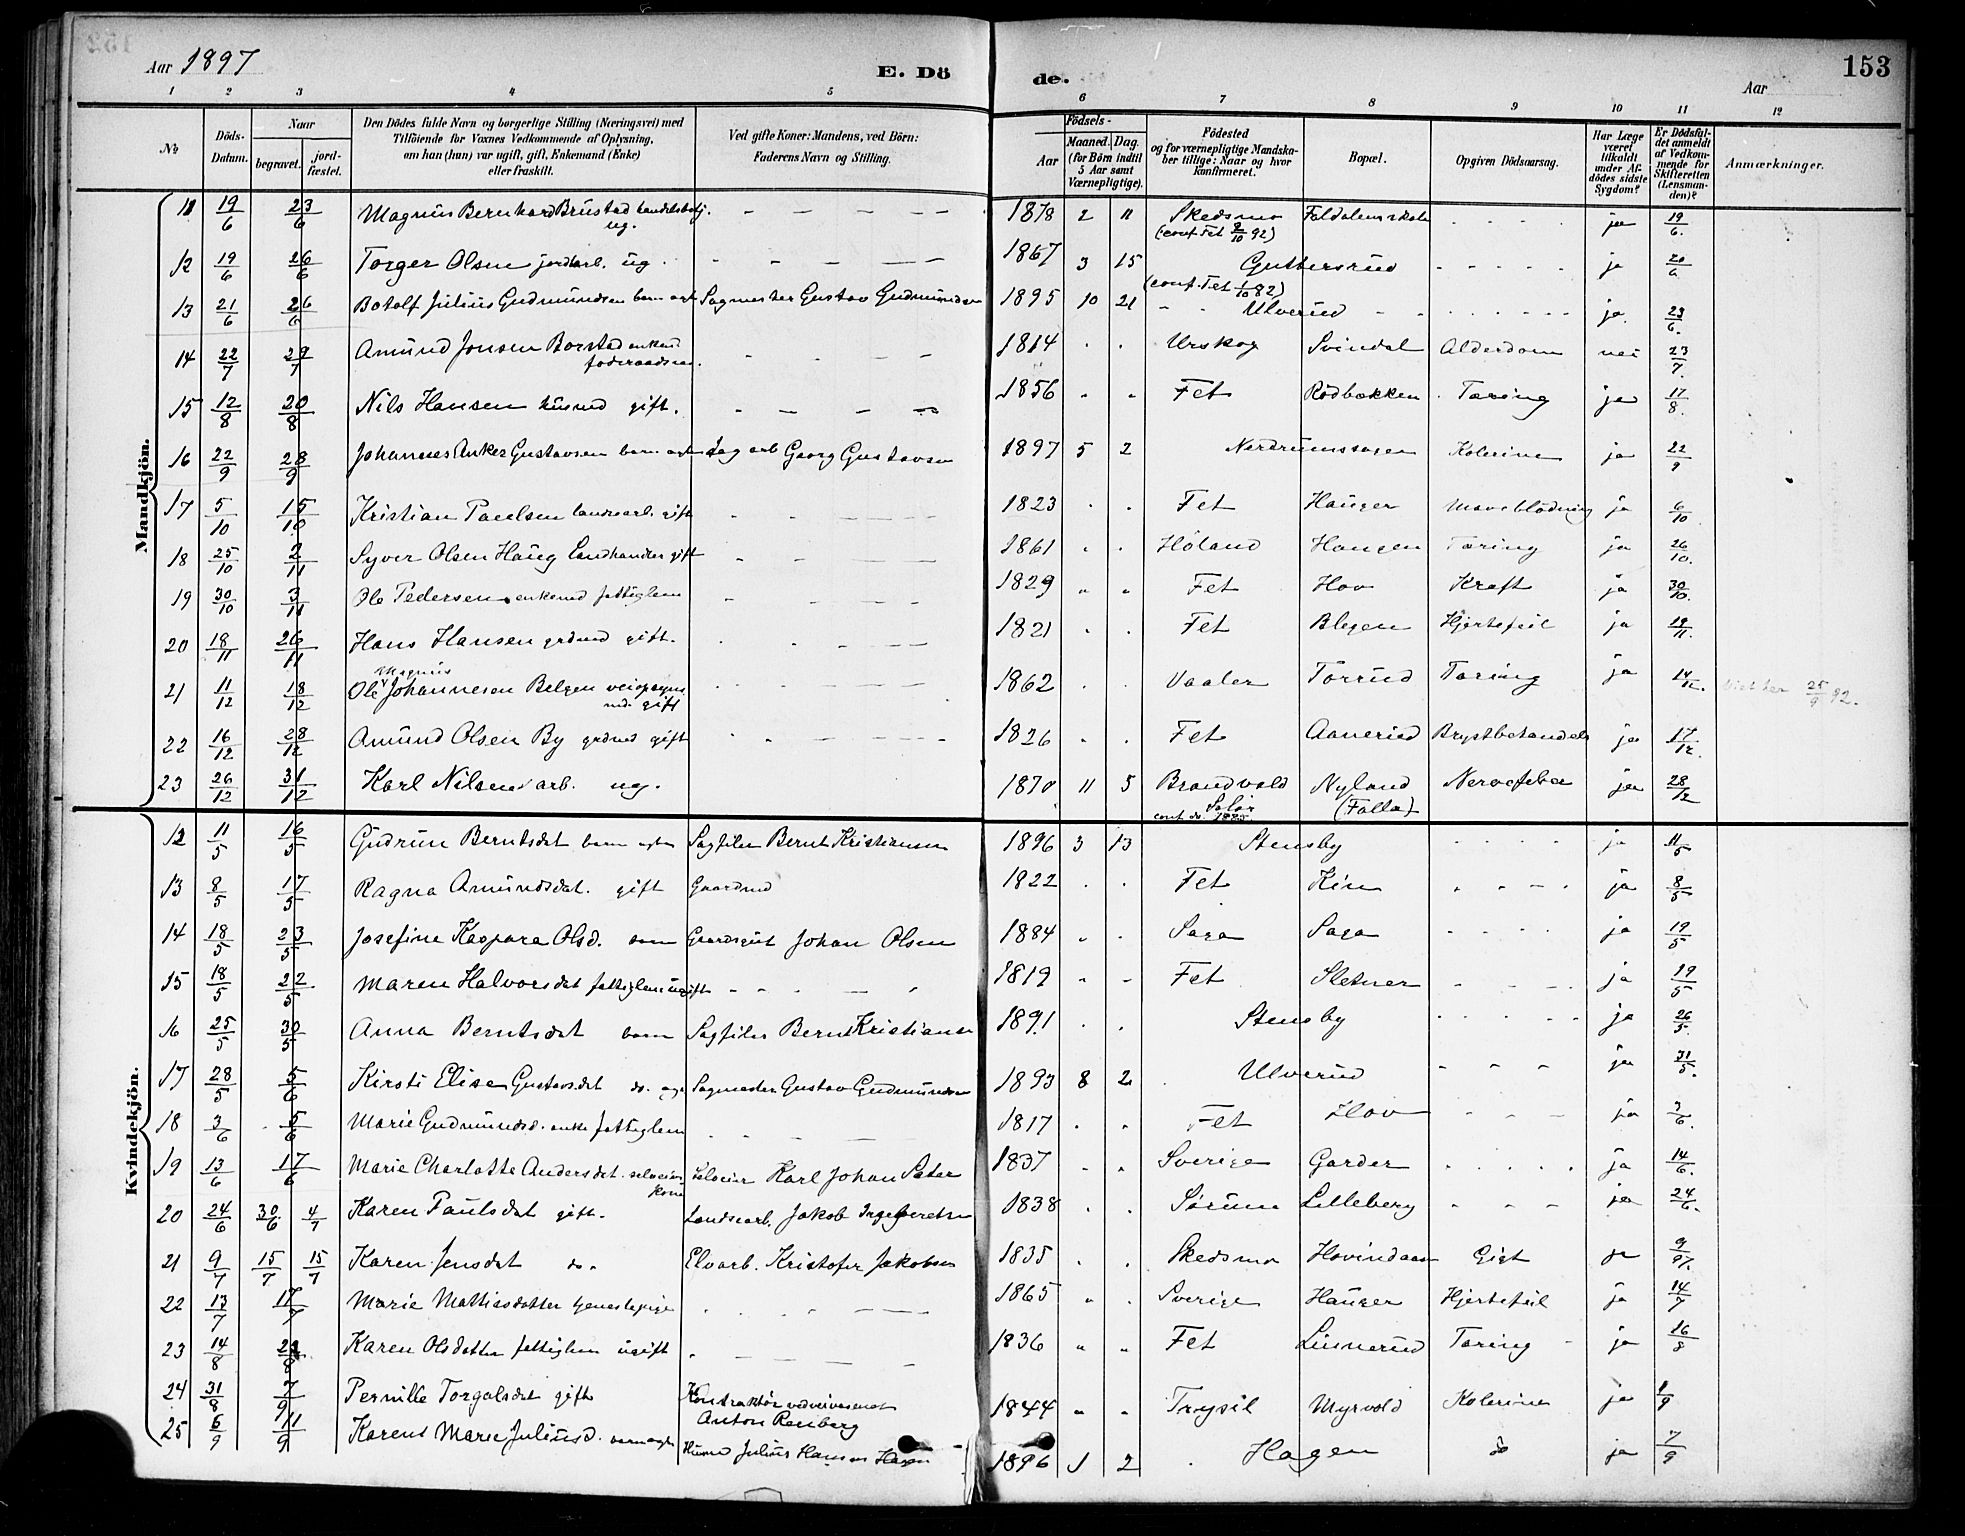 Aar 1897
E. Döde.
Aar
153
1 2 3 4 5 6 7 8 9 10 11 12
No
Döds-Datum.
Naar
begravet.
jord-fæstet.
Den Dödes fulde Navn og borgerlige Stilling (Næringsvei) med
Tilföiende for Voxnes Vedkommende af Oplysning,
om han (hun) var ugift, gift, Enkemand (Enke)
eller fraskilt.
Ved gifte Koner: Mandens, ved Börn:
Faderens Navn og Stilling.
Födsels-
Aar
Maaned. Dag.
(for Börn indtil
5 Aar samt
Værnepligtige).
Födested
og for værnepligtige Mandska-
ber tillige: Naar og hvor
konfirmeret.
Bopæl.
Opgiven Dödsaarsag.
Har Læge
været
tilkaldt
under Af-
dödes sidste
Sygdom?
Er Dödsfal-
det anmeldt
af Vedkom-
mende for
Skifteretten
(Lensman-
den)?
Anmærkninger.
Mandkjön.
11 19/6 23/6 Magnus Bernhard Brustad handelsbetj. ug. 1878 2 11 Skedsmo (conf. Fet 2/10 92) ja 19/6.
12 19/6 26/6 Torger Olsen jordarb. ug. 1867 3 15 Guttersrud (conf. Fet 1/10 82) ja 20/6
13 21/6 26/6 Botolf Julius Gudmundsen barn ægt Sagmester Gustav Gudmundsen 1895 10 21 Ulverud ja 23/6.
14 22/7 29/7 Amund Jonsen Borstad enkemd foderaadsm. 1814 Urskog Svindal Alderdom nei 23/7.
15 12/8 20/8 Nils Hansen husmd gift. 1856 Fet Rödbækken Tæring ja 17/8.
16 22/9 28/9 Johannes Anker Gustavsen barn ægte Sag arb Georg Gustavsen 1897 5 2 Nerdrumssagen Kolerine ja 22/9
17 5/10 15/10 Kristian Paulsen landearb. gift 1823 Fet Hauger Maveblödning ja 6/10.
18 25/10 2/11 Syver Olsen Haug Landhandler gift 1861 Höland Haugen Tæring ja 26/10.
19 30/10 3/11 Ole Pedersen enkemd fattiglem 1829 Fet Hov Kræft ja 30/10.
20 18/11 26/11 Hans Hansen grdmd gift. 1821 Fet Blegen Hjertefeil ja 19/11.
21 11/12 18/12 Ole Magnus Johannesen Belgen gift 1862 Vaaler Torrud Tæring ja 14/12. 25/9 92.
22 16/12 28/12 Amund Olsen By grdmd gift 1826 Fet Aanerud ja 17/12.
23 26/12 31/12 Karl Nilsen arb. ug. 1870 11 5 Brandvold Solör Nyland (Falla) Nervefeber ja 28/12
Kvindekjön.
12 11/5 16/5 Gudrun Berntsdat barn ægte Sagfiler Bernt Kristiansen 1896 3 13 Stensby ja 11/5
13 8/5 17/5 Ragna Amundsdat. gift Gaardmd 1822 Fet ja 8/5
14 18/5 23/5 Josefine Kaspara Olsd. barn Gaardsgut Johan Olsen 1884 Saga Saga ja 19/5
15 18/5 22/5 Maren Halvorsdat fattiglem ugift 1819 Fet Sletner ja 19/5
16 25/5 30/5 Anna Berntsdat barn Sagfiler Bernt Kristiansen 1891 Stensby ja 26/5.
17 28/5 5/6 Kirsti Elise Gustavsdat do. ægte Sagmester Gustav Gudmundsen 1893 8 2 Ulverud ja 31/5.
18 3/6 5/6 Marie Gudmundsd. enke fattiglem 1817 Fet Hov ja 3/6.
19 13/6 17/6 Marie Charlotte Andersdat. selveier kone Selveier Karl Johan Peter 1837 Sverige Garder ja 14/6.
20 24/6 30/6 4/7 Karen Paulsdat gift. Landearb. Jakob Ingebretsen 1838 Sörum Lilleberg ja 24/6.
21 9/7 15/7 15/7 Karen Jensdat do. Elvarb. Kristofer Jakobsen 1835 Skedsmo Hovindaas Gigt ja 9/7.
22 13/7 17/7 Marie Mathiasdatter tjenestepige 1865 Sverige Hauger Hjertefeil ja 14/7
23 14/8 21/8 Karen Olsdatter fattiglem ugift 1836 Fet Linnerud Tæring ja 16/8
24 31/8 7/9 Pernille Torgalsdat gift Kontraktör ved veivæsenet Anton Renberg 1844 Trysil Myrvold Kolerine ja 1/9
25 6/9 11/9 Karen Marie Juliusd. barn ægte Husmd Julius Hansen Hagen 1896 1 2 Hagen do ja 7/9